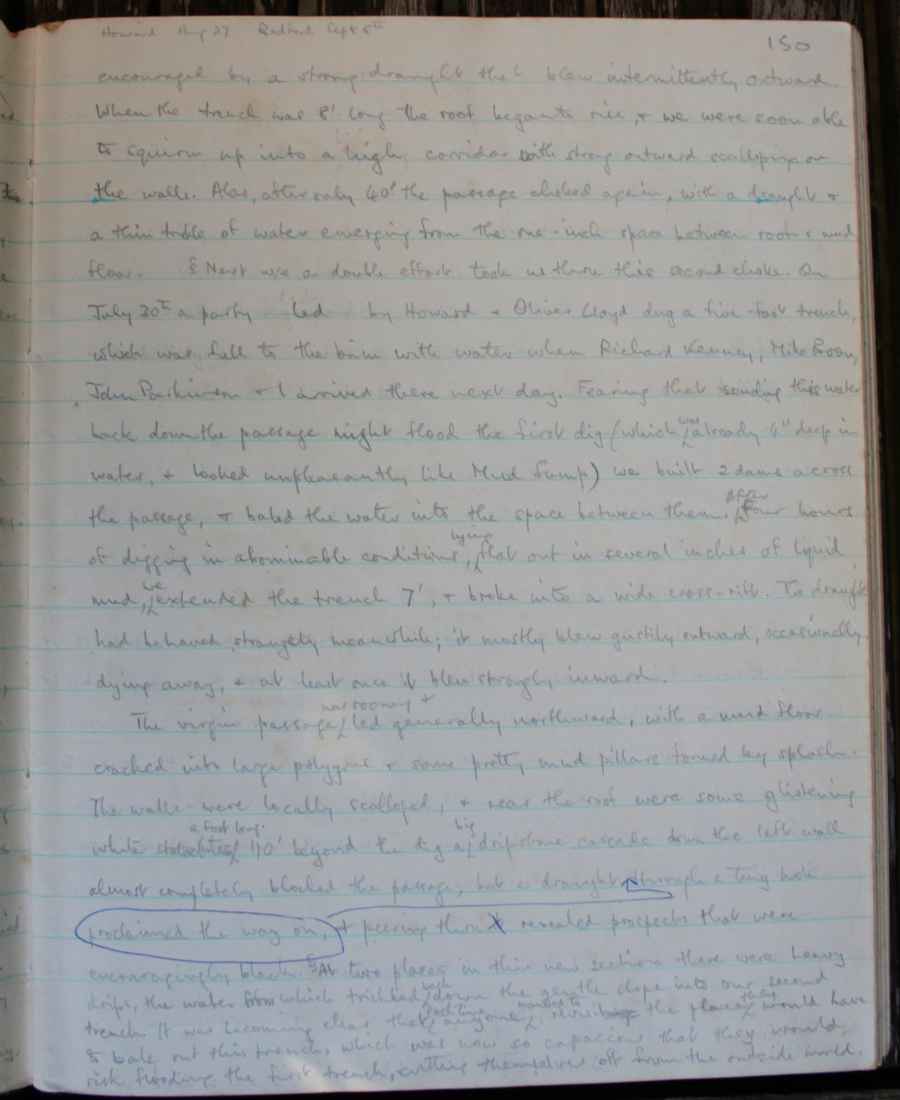 Howard Aug 27 Sept 5th
150
encouraged by a strong draught that blew intermittently outward.
When the trench was 8' long the roof began to rise, & we were soon able
to squirm up into a high corridor with strong outward scalloping on
the walls. Alas, after only 40' the passage choked again, with a draught &
a thin trickle of water emerging from the one-inch space between roof & mud
floor. a double effort took us through this second choke. On
July 20th a party led by Howard & Oliver Lloyd dug a five-foot trench,
which was full to the brim with water when Richard Kenney, Mike Boon,
John Parkinson & I arrived there next day. Fearing that sending this water
back down the passage might flood the first dig (which was already 4" deep in
water, & looked unpleasantly like Mud Sump) we built 2 dams across
the passage, & baled the water into the space between them. After four hours
of digging in abominable conditions, lying flat out in several inches of liquid
mud, we extended the trench 7', & broke into a wide cross-rift. The draught
had behaved strangely meanwhile; it mostly blew gustily outward, occasionally
dying away, & at least once it blew strongly inward.
The virgin passage was roomy & led generally northward, with a mud floor
cracked into large polygons & some pretty mud pillars formed by splash.
The walls were locally scalloped, & near the roof were some glistening
white stalactites a foot long. 110' beyond the dig a big dripstone cascade down the left wall
almost completely blocked the passage, but a draught through a tiny hole
proclaimed the way on, & peering thro' it revealed prospects that were
encouragingly black. At two places in this new section there were heavy
drips, the water from which trickled back down the gentle slope into our second
trench. It was becoming clear that anyone the place they would have
to bale out this trench, which was now so capacious that they would
risk flooding the first trench, cutting themselves off from the outside world.